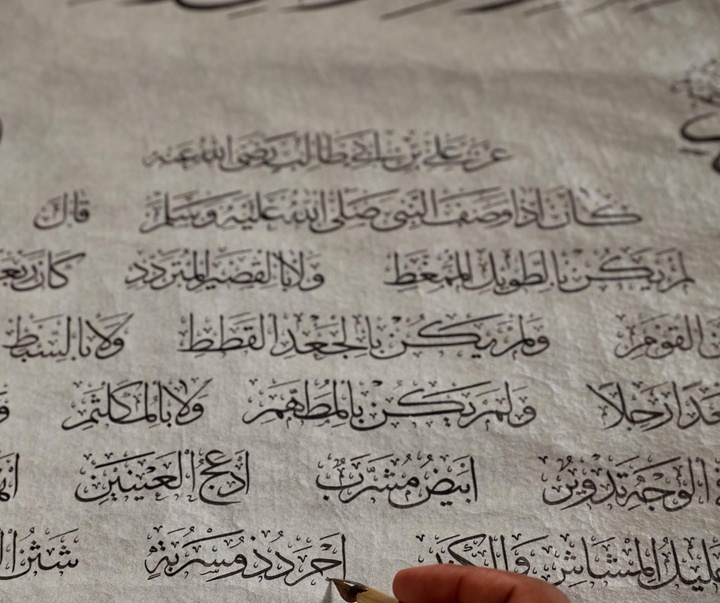 عن علي بن ابي طالب رضي الله عنه
كان اذا وصف النبي صلى الله عليه وسلم قال
لم يكن بالطويل الممغط ولا بالقصير المتردد كان ربعة
القوم ولم يكن بالجعد القطط ولا بالسبط
جعدا رجلا ولم يكن بالمطهم ولا بالمكلثم
الوجه تدوير ابيض مشرب ادعج العينين
جليل المشاش والكتد اجرد ذو مسربة شثن